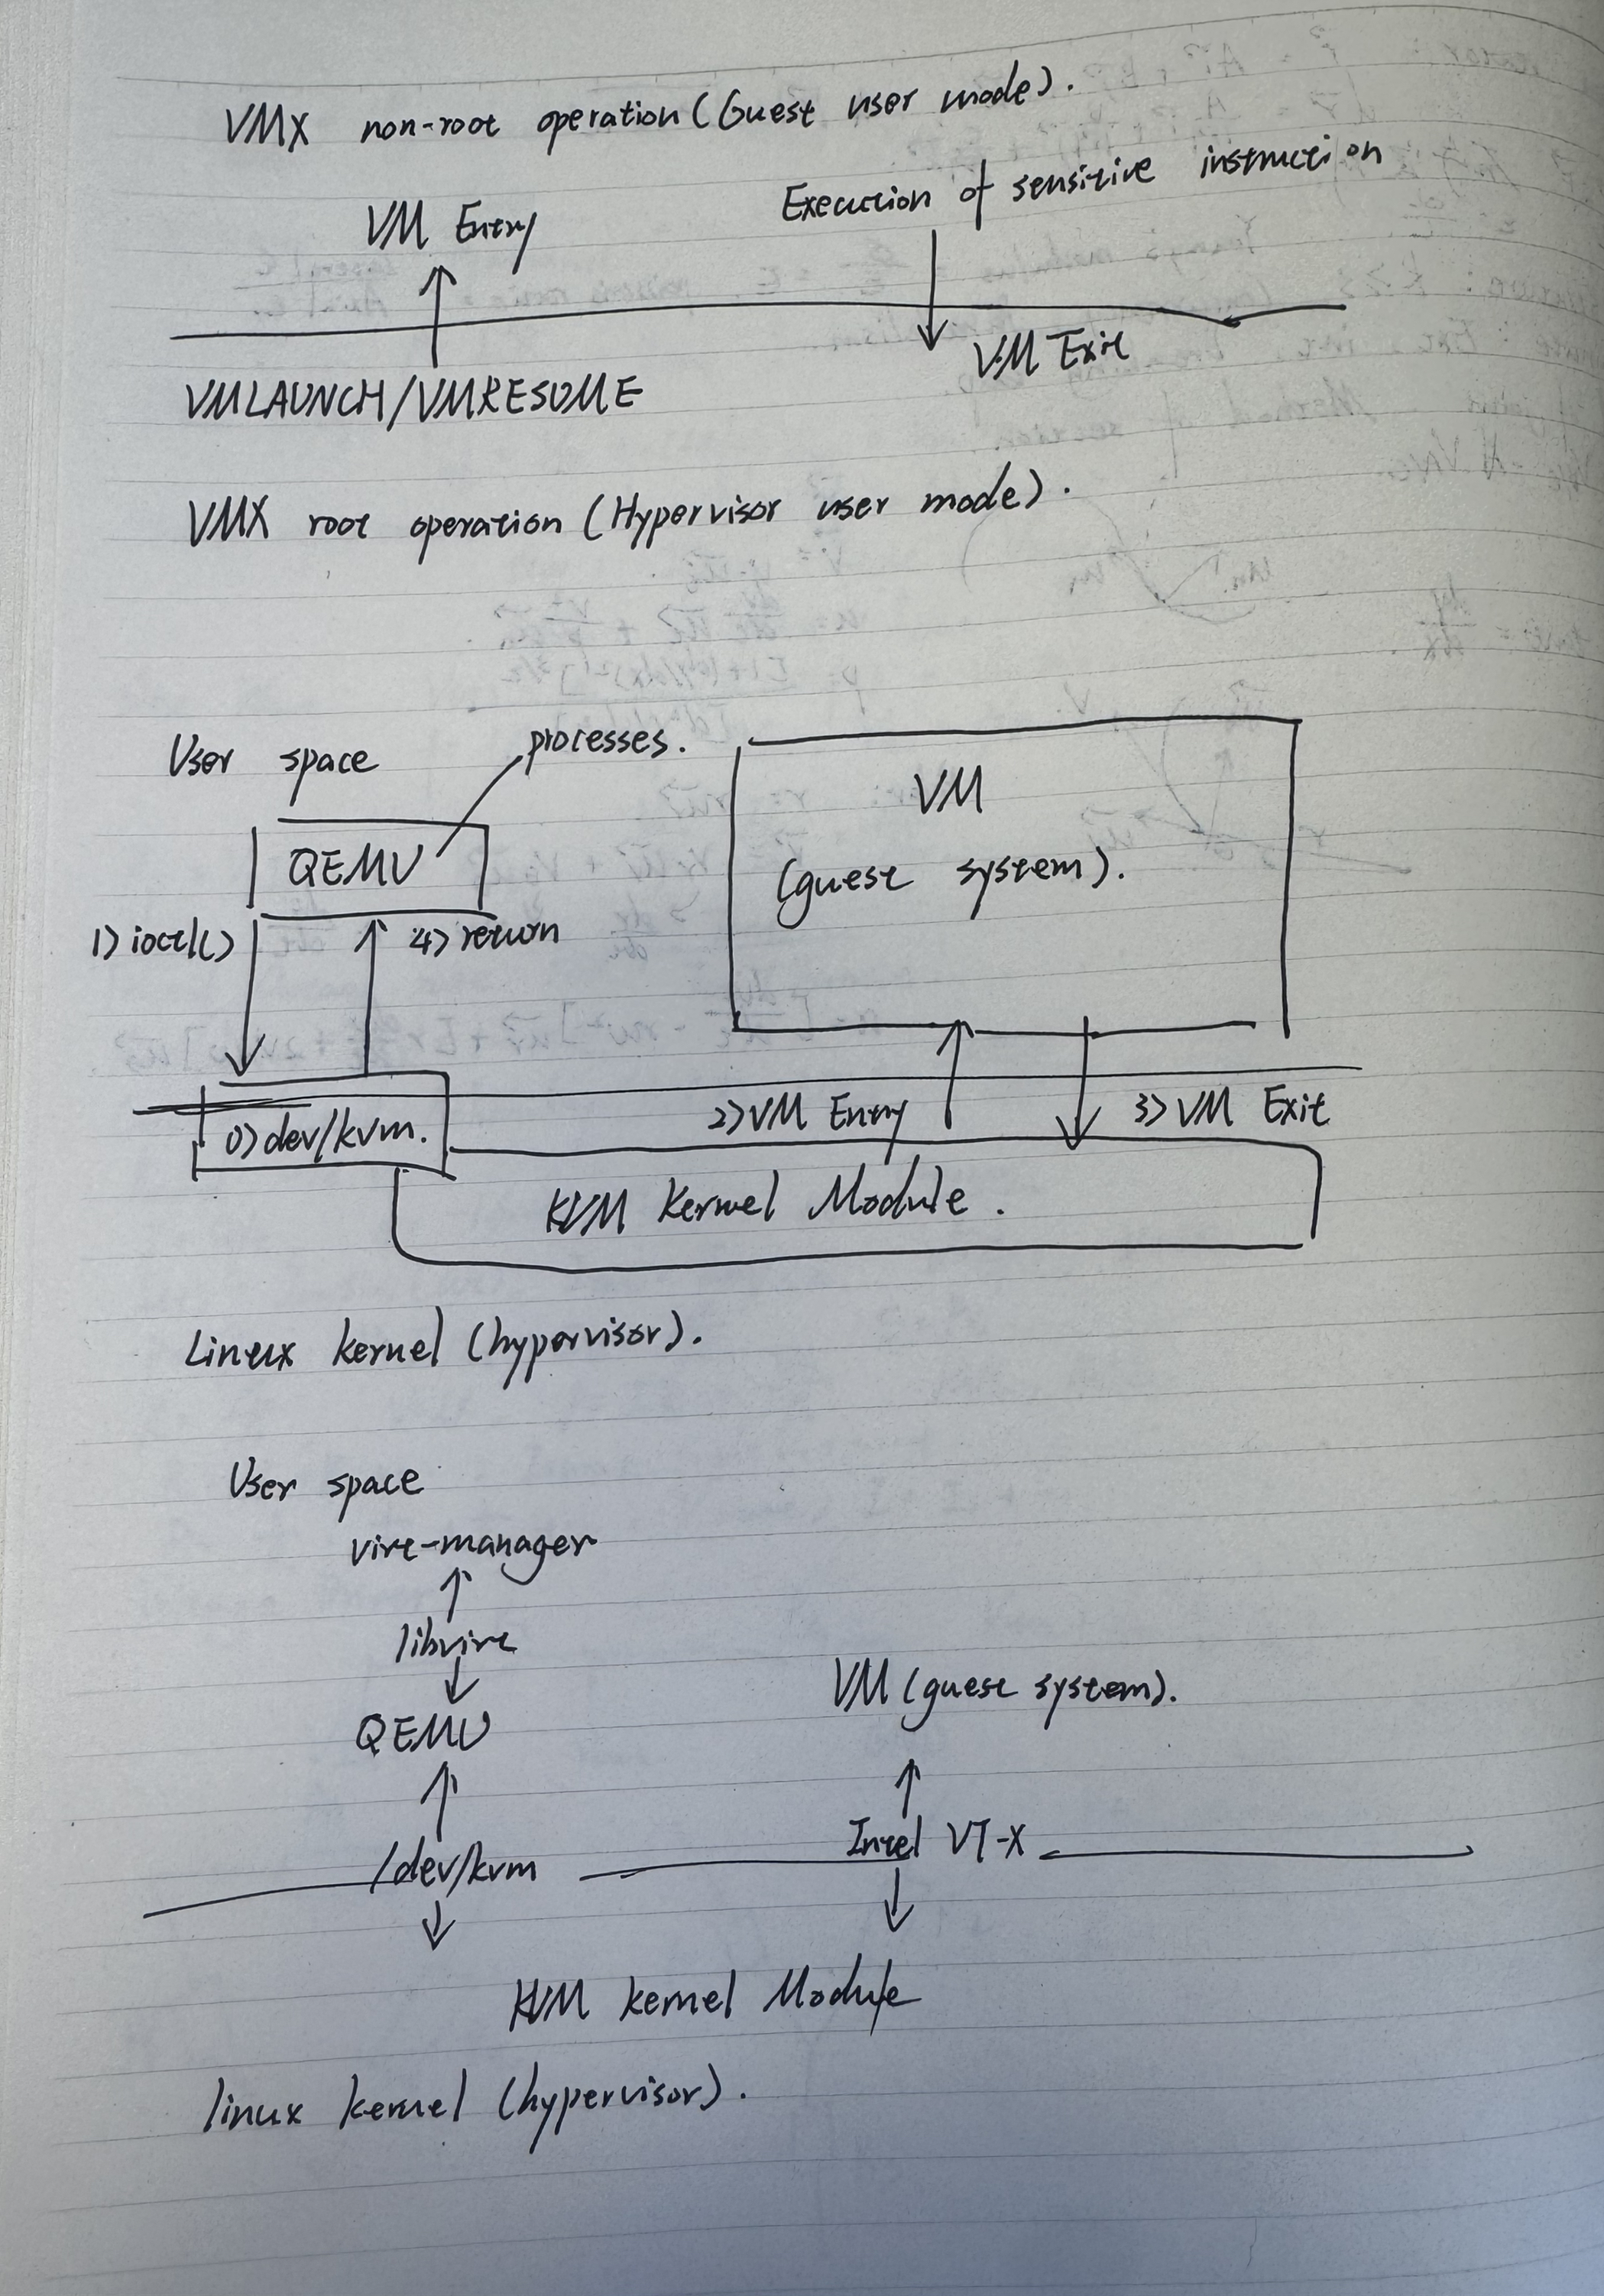 VMX non-root operation (Guest user mode).
VM Entry
Execution of sensitive instruction
VM Exit
VMLAUNCH/VMRESUME
VMX root operation (Hypervisor user mode).
User space
processes.
QEMU
VM
(guest system).
1) ioctl()
4) return
0) dev/kvm.
2) VM Entry
3) VM Exit
KVM Kernel Module.
Linux kernel (hypervisor).
User space
virt-manager
libvirt
QEMU
VM (guest system).
/dev/kvm
Intel VT-X
KVM kernel Module
linux kernel (hypervisor).